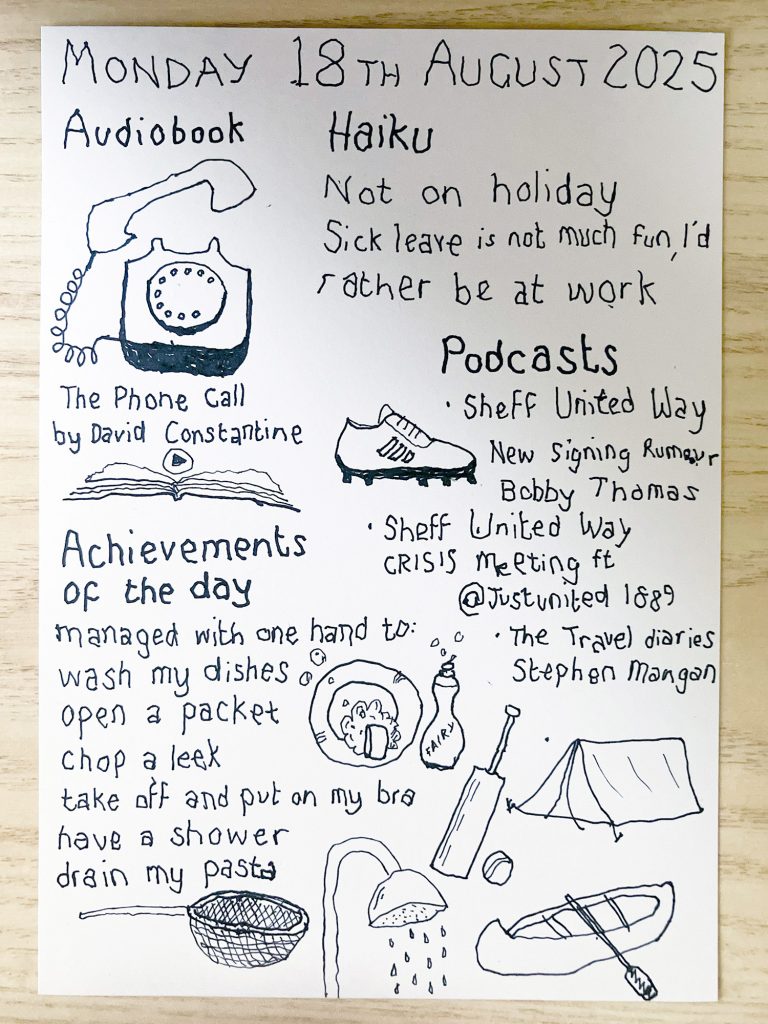 MONDAY 18TH AUGUST 2025
Audiobook
The Phone Call
by David Constantine
Haiku
Not on holiday
Sick leave is not much fun, I'd
rather be at work
Podcasts
· Sheff United Way
New Signing Rumour
Bobby Thomas
· Sheff United Way
CRISIS Meeting ft
@Justunited 1889
· The Travel diaries
Stephen Mangan
Achievements
of the day
managed with one hand to:
wash my dishes
open a packet
chop a leek
take off and put on my bra
have a shower
drain my pasta
FAIRY